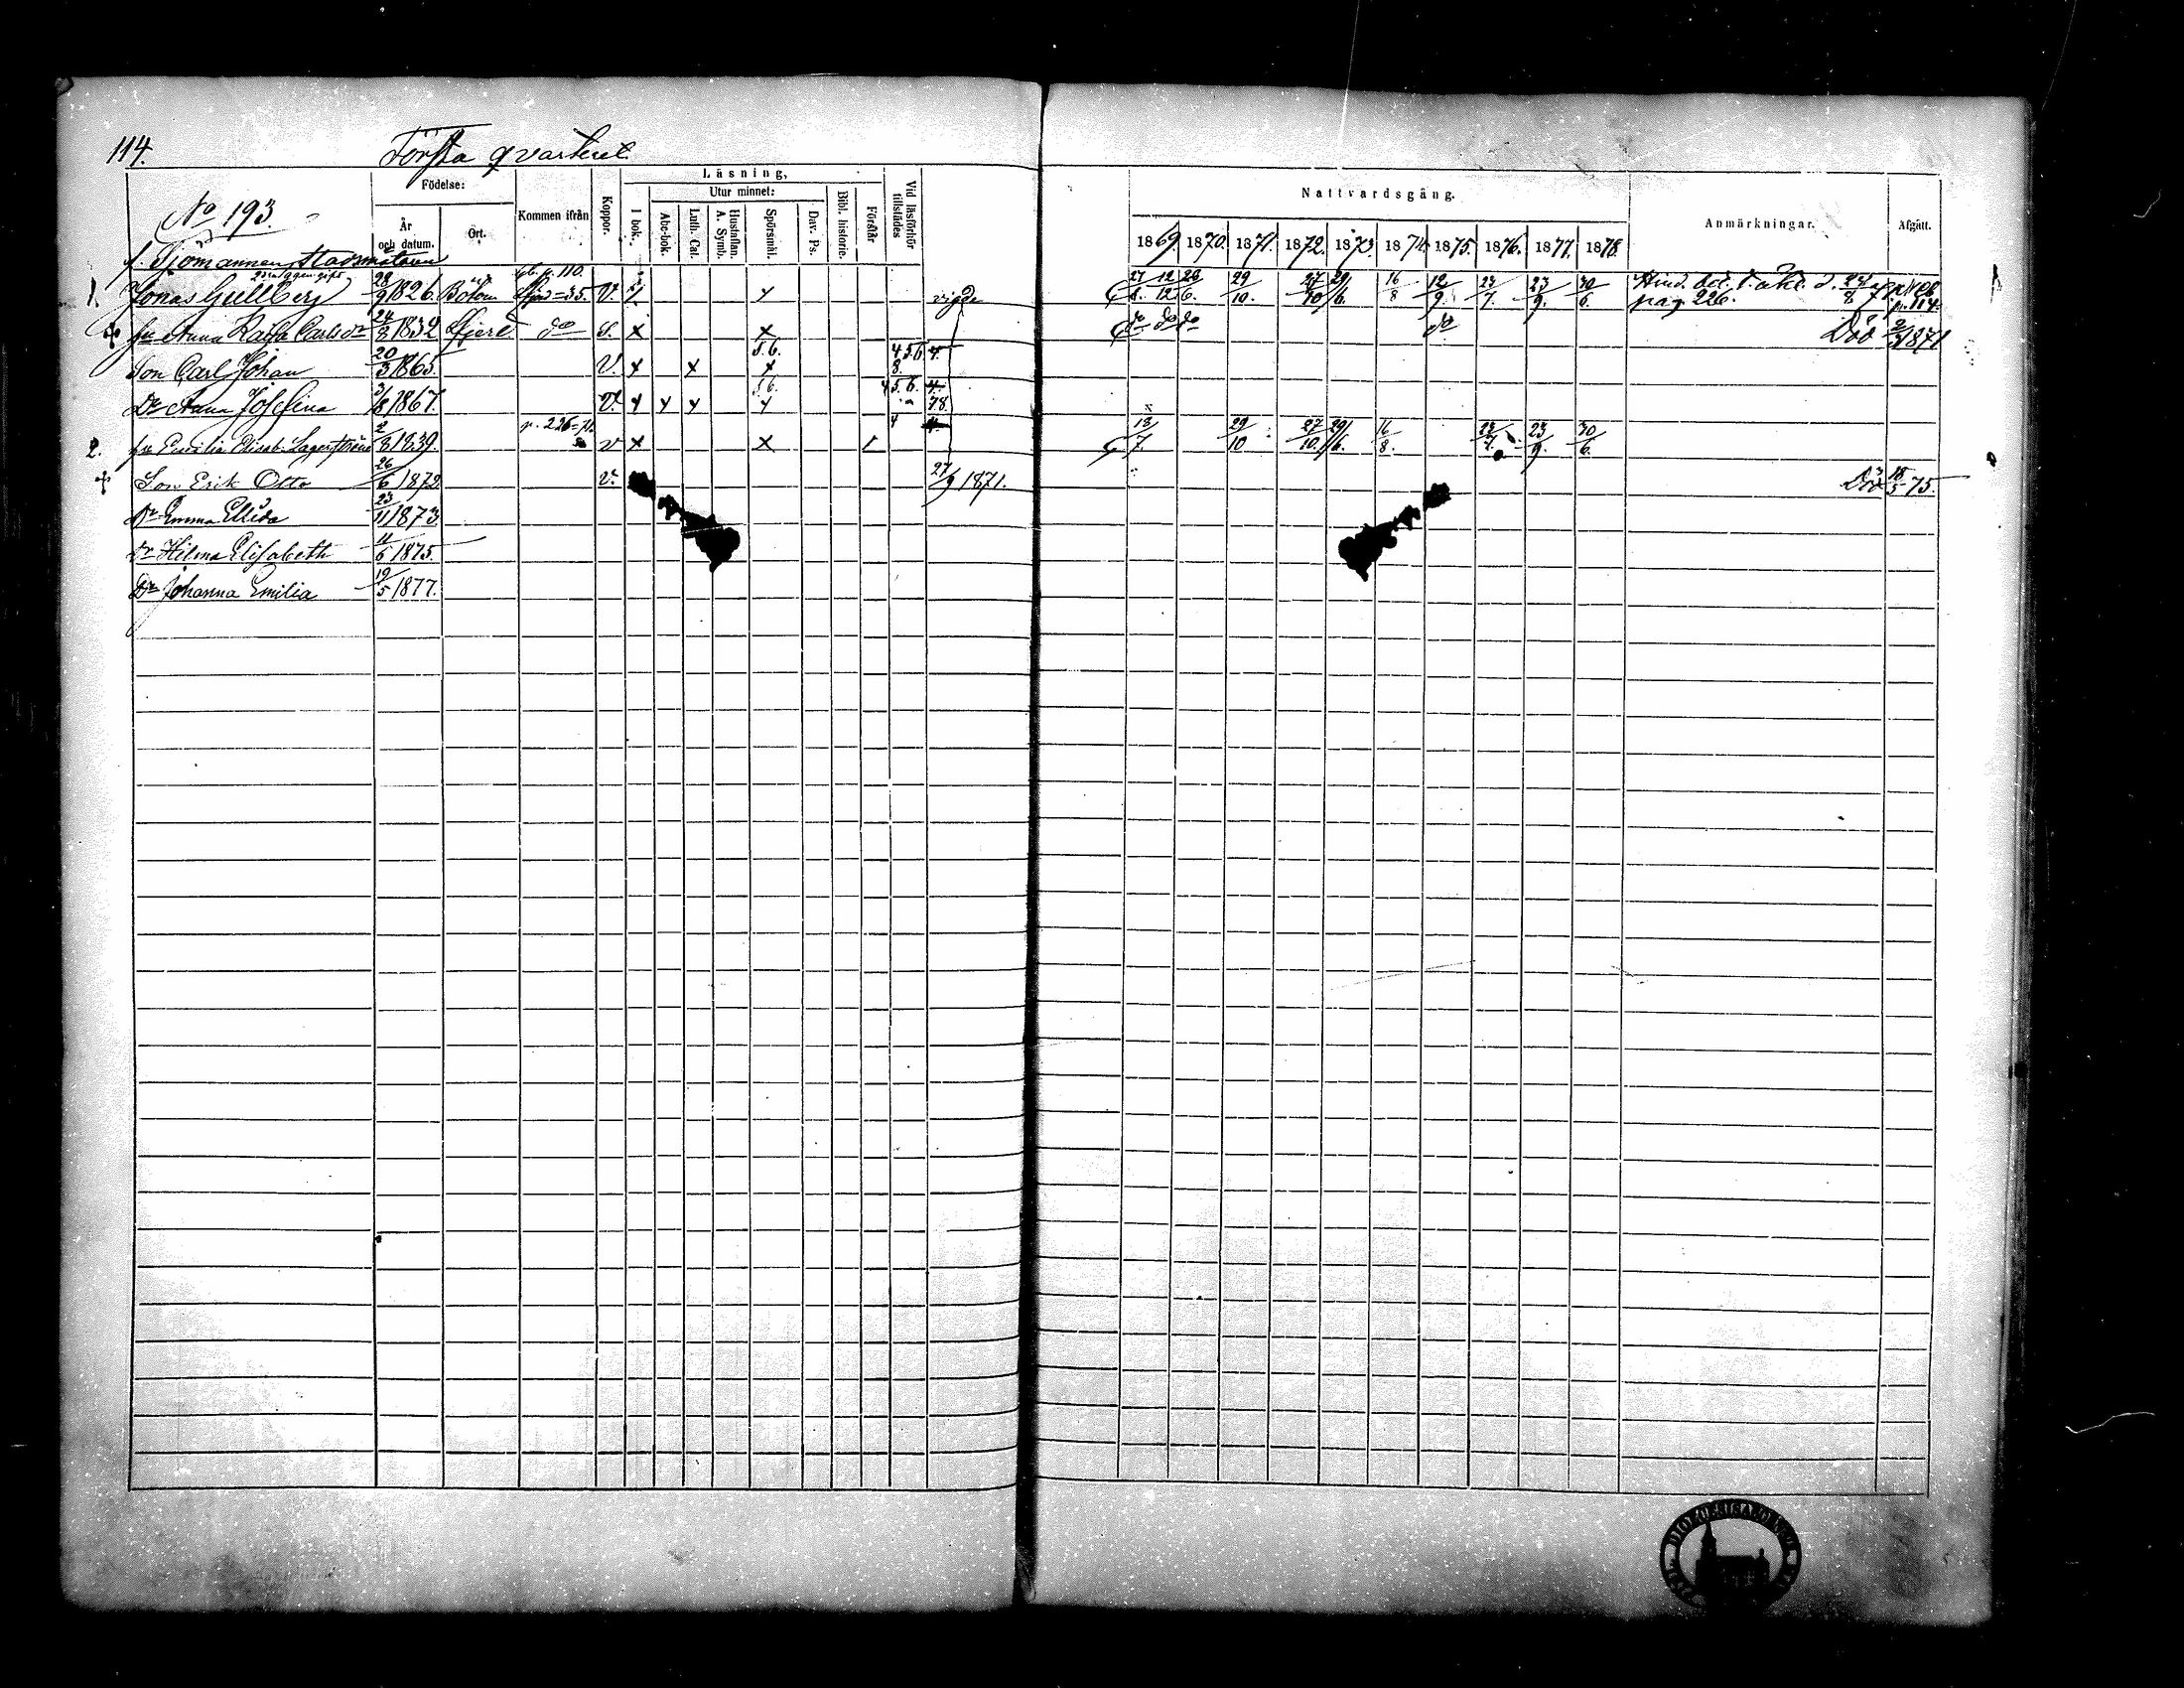 114. Första qvarteret.
Läsning,
Födelse:
Utur minnet:
Nattvardsgång.
No 193.
År och datum.
Ort.
Kommen ifrån
Koppor.
I bok.
Abc-bok.
Luth. Cat.
Hustaflan. A. Symb.
Spörsmål.
Dav. Ps.
Bibl. historie.
Förstår
Vid läsförhör tillstädes
1869. 1870. 1871. 1872. 1873. 1874. 1875. 1876. 1877. 1878.
Anmärkningar.
Afgått.
f. Sjömannen
gb. p. 110.
1. Jonas Gullberg 28/9 1826. V. vigde 29/10. 27/10 29/6. 16/8 12/9. 23/7. 23/9. 30/6. pag. 226.
hu Anna 24/8 1832 do S. x x do do do do Död 1871
5.6. 4 5 6
Son Carl Johan 20/3 1865. V. x x x 8.
5.6. 4 5. 6.
Dr Anna Josefina 1867. V. x x x x 78.
p. 226
2. hu Emilia Elisab. Lagerström 2/8 1839. v x x 1 13/7. 29/10 27/10. 29/6. 16/8. 23/7. 23/9. 30/6.
Son Erik Otto 26/6 1872 v. 27/9 1871. Död 75.
Dr Emma Ellida 23/11 1873.
Dr Hilma Elisabeth 11/6 1875.
Dr Johanna Emilia 19/5 1877.